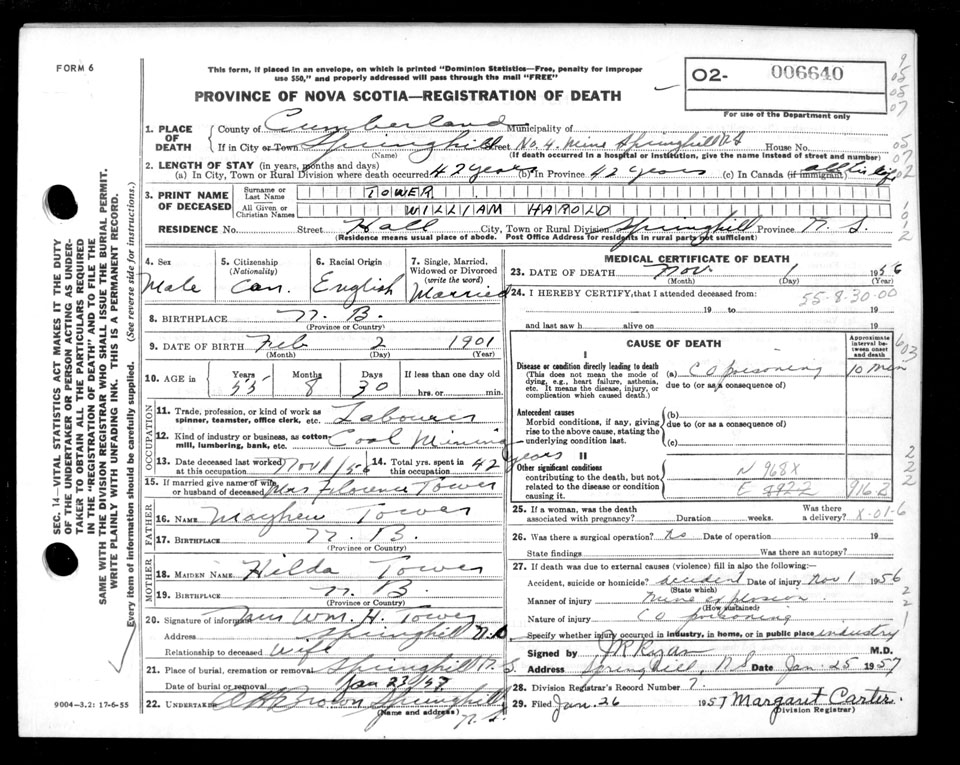 FORM 6
This form, if placed in an envelope, on which is printed "Dominion Statistics—Free, penalty for improper
use $50," and properly addressed will pass through the mail "FREE"
O2- 006640
For use of the Department only
PROVINCE OF NOVA SCOTIA—REGISTRATION OF DEATH
1. PLACE OF DEATH
County of Cumberland Municipality of
If in City or Town Springhill Street No. 4 Mine Springhill N.S House No.
(Name) (If death occurred in a hospital or institution, give the name instead of street and number)
2. LENGTH OF STAY (in years, months and days)
(a) In City, Town or Rural Division where death occurred 42 years (b) In Province 42 years (c) In Canada (if immigrant) all his life
3. PRINT NAME OF DECEASED
Surname or Last Name TOWER
All Given or Christian Names WILLIAM HAROLD
RESIDENCE No. Street Hall City, Town or Rural Division Springhill Province N. S.
(Residence means usual place of abode. Post Office Address for residents in rural parts not sufficient)
4. Sex Male
5. Citizenship (Nationality) Can.
6. Racial Origin English
7. Single, Married, Widowed or Divorced (write the word) Married
8. BIRTHPLACE N. B.
(Province or Country)
9. DATE OF BIRTH Feb 2 1901
(Month) (Day) (Year)
10. AGE in Years 55 Months 8 Days 30 If less than one day old
hrs. or min.
OCCUPATION
11. Trade, profession, or kind of work as spinner, teamster, office clerk, etc. Labourer
12. Kind of industry or business, as cotton mill, lumbering, bank, etc. Coal Mining
13. Date deceased last worked at this occupation Nov 1/56 14. Total yrs. spent in this occupation 42 years
15. If married give name of wife or husband of deceased Mrs Florence Tower
FATHER
16. NAME Mayhew Tower
17. BIRTHPLACE N. B.
(Province or Country)
MOTHER
18. MAIDEN NAME Hilda Tower
19. BIRTHPLACE N. B.
(Province or Country)
20. Signature of informant Mrs Wm. H. Tower
Address Springhill N.S
Relationship to deceased Wife
21. Place of burial, cremation or removal Springhill N. S.
Date of burial or removal Jan 23/57
22. UNDERTAKER Brown Springhill
(Name and address) N. S.
MEDICAL CERTIFICATE OF DEATH
23. DATE OF DEATH Nov. 1 1956
(Month) (Day) (Year)
24. I HEREBY CERTIFY, that I attended deceased from:
55-8-30-00
19 to 19
and last saw h alive on 19
CAUSE OF DEATH
Approximate interval between onset and death
I
Disease or condition directly leading to death
(This does not mean the mode of dying, e.g., heart failure, asthenia, etc. It means the disease, injury, or complication which caused death.)
(a) CO poisoning 10 min
due to (or as a consequence of)
Antecedent causes
Morbid conditions, if any, giving rise to the above cause, stating the underlying condition last.
(b)
due to (or as a consequence of)
(c)
II
Other significant conditions
contributing to the death, but not related to the disease or condition causing it.
N 968X
E 916.2
25. If a woman, was the death associated with pregnancy? Duration weeks. Was there a delivery? X-01-6
26. Was there a surgical operation? No Date of operation 19
State findings Was there an autopsy?
27. If death was due to external causes (violence) fill in also the following:
Accident, suicide or homicide? Accident Date of injury Nov 1 1956
(State which)
Manner of injury mine explosion
(How sustained)
Nature of injury CO poisoning
Specify whether injury occurred in industry, in home, or in public place industry
Signed by J R Ryan M.D.
Address Springhill, N.S Date Jan. 25 1957
28. Division Registrar's Record Number 7.
29. Filed Jan. 26 1957 Margaret Carter.
(Division Registrar)
SEC. 14—VITAL STATISTICS ACT MAKES IT THE DUTY
OF THE UNDERTAKER OR PERSON ACTING AS UNDER-
TAKER TO OBTAIN ALL THE PARTICULARS REQUIRED
IN THE "REGISTRATION OF DEATH" AND TO FILE THE
SAME WITH THE DIVISION REGISTRAR WHO SHALL ISSUE THE BURIAL PERMIT.
WRITE PLAINLY WITH UNFADING INK. THIS IS A PERMANENT RECORD.
Every item of information should be carefully supplied. (See reverse side for instructions.)
9004-3.2: 17-6-55